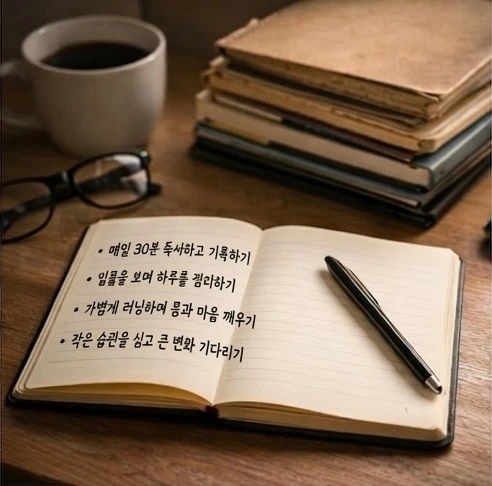 • 매일 30분 독서하고 기록하기
• 보며 하루를
• 가볍게 러닝하며 몸과 마음 깨우기
• 작은 습관을 심고 큰 변화 기다리기